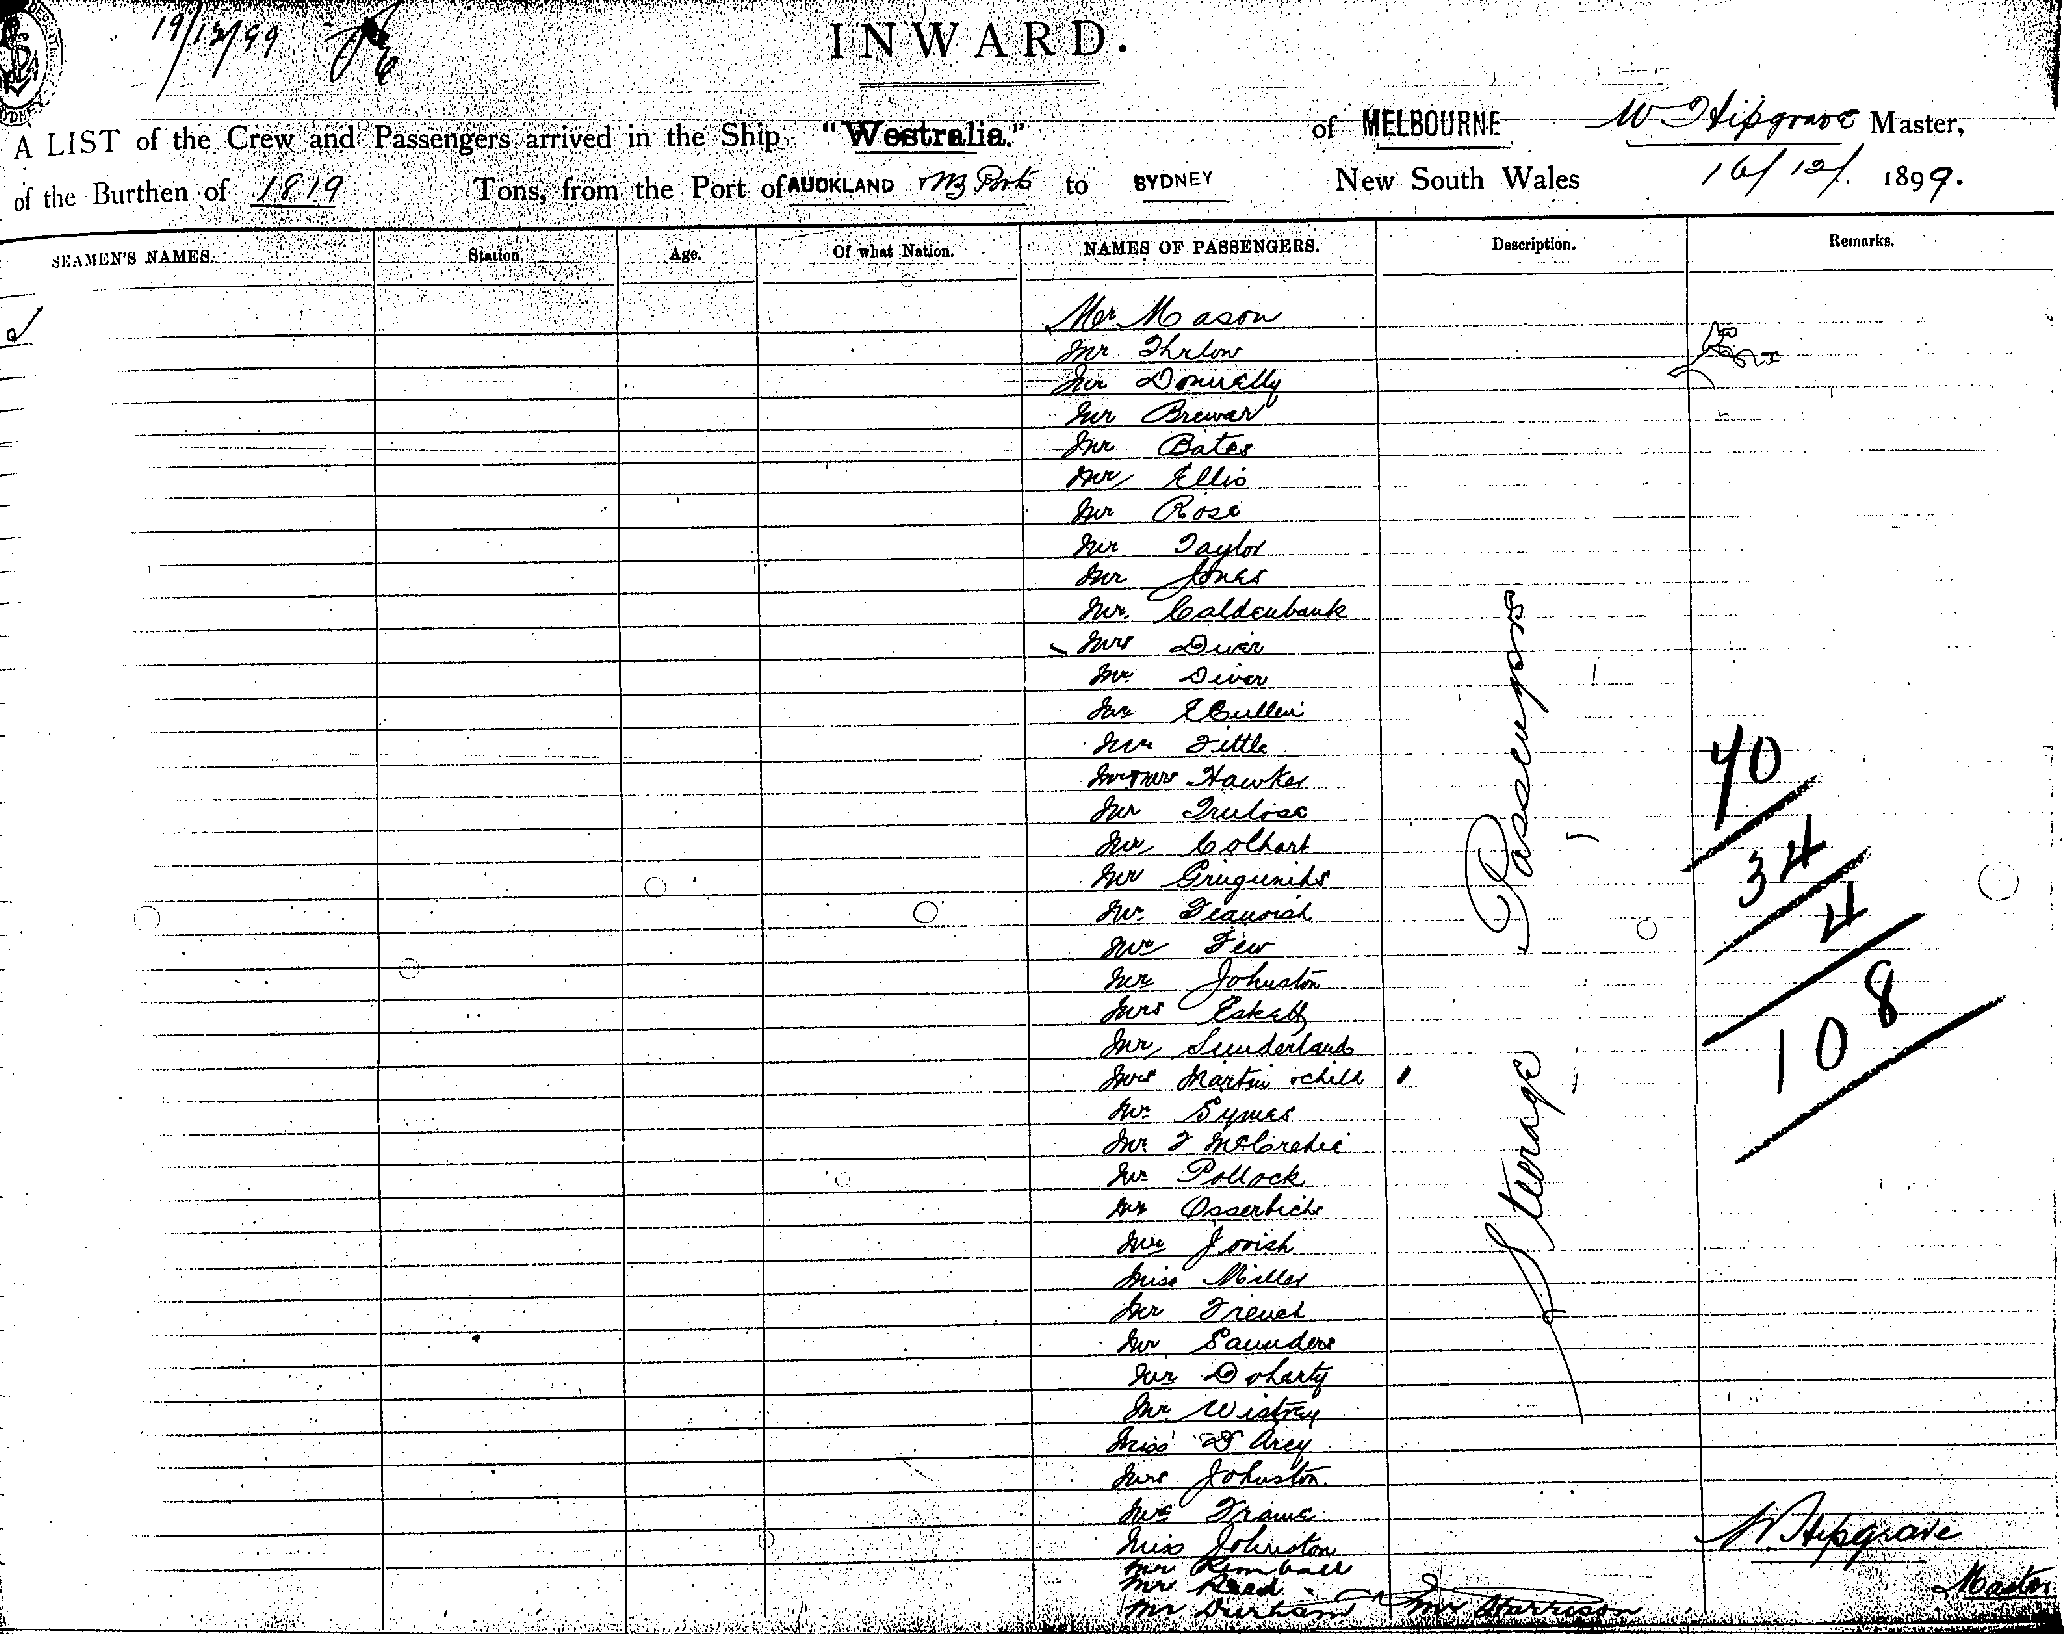 19/12/99
INWARD.
A LIST of the Crew and Passengers arrived in the Ship "Westralia." of MELBOURNE W Hipgrave Master,
of the Burthen of 1819 Tons, from the Port of AUCKLAND & NZ Ports to SYDNEY New South Wales 16/12/. 1899.
SEAMEN'S NAMES. Station. Age. Of what Nation. NAMES OF PASSENGERS. Description. Remarks.
Mr Mason
Mr Thrlow
Mr Donnelly
Mr Brewer
Mr Bates
Mr Ellis
Mr Rose
Mr Taylor
Mr Jones
Mr. Caldenbank
Mrs Diver
Mr Diver
Mr E Cullen
Mr Tittle
Mr & Mrs Hawker
Mr
Mr Colhart
Mr
Mr
Mr Few
Mr Johnston
Mrs
Mr Sunderland
Mrs Martin & child
Mr Symes
Mr T McCredie
Mr Pollock
Mr Osserbich
Mr Jovich
Miss Miller
Mr French
Mr Saunders
Mr Doharty
Mr
Miss D'Arcy
Mrs Johnston
Mr Frame
Miss Johnston
Mr Kimball
Mr Reed
Mr Durham Mr Harrison
Steerage Passengers
40
34
4
108
W. Hipgrave
Master